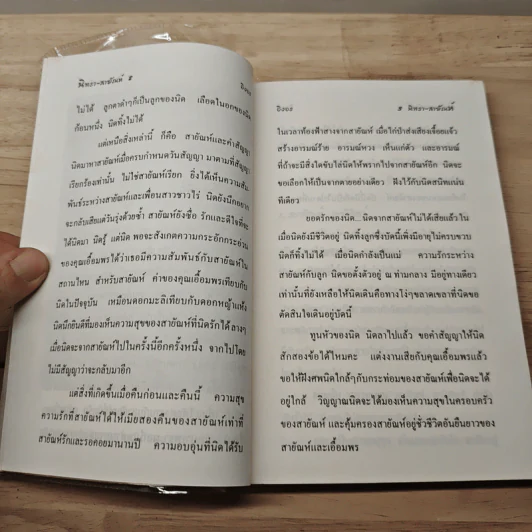 นิทรา-สายัณห์ ๕
ปิงทอง
ไม่ได้ ลูกดาดำๆก็เป็นลูกของนิด เลือดในอกของนิด
ก้อนหนึ่ง นิดทิ้งไม่ได้
แต่เหนือสิ่งเหล่านี้ ก็คือ สายัณห์และคำสัญญา
นิดมาหาสายัณห์เมื่อครบกำหนดวันสัญญา มาตามที่สัญญา
เรียกร้องเท่านั้น ไม่ใช่สายัณห์เรียก ยิ่งได้เห็นความสัม
พันธ์ระหว่างสายัณห์และเพื่อนสาวชาวไร่ นิดยังนึกอยาก
จะกลับเสียแต่วันรุ่งด้วยซ้ำ สายัณห์ยังซื่อ รักและดีใจที่จะ
ได้นิดมา นิดรู้ แต่นิด พอจะสังเกตความกระอักกระอ่วน
ของคุณเอื้อมพรได้ว่าเธอมีความสัมพันธ์กับสายัณห์ใน
สถานไหน สำหรับสายัณห์ ค่าของคุณเอื้อมพรเทียบกับ
นิดในปัจจุบัน เหมือนดอกมะลิเทียบกับดอกหญ้าแห้ง
นิดนึกยินดีที่มองเห็นความสุขของสายัณห์ที่นิดรักได้ลางๆ
เมื่อนิดจะจากสายัณห์ไปในครั้งนี้อีกครั้งหนึ่ง จากไปโดย
ไม่มีสัญญาว่าจะกลับมาอีก
แต่สิ่งที่เกิดขึ้นเมื่อคืนก่อนและคืนนี้ ความสุข
ความรักที่สายัณห์ได้ให้เมียสองคืนของสายัณห์เท่าที่
สายัณห์รักและรอคอยมานานปี ความอบอุ่นที่นิดได้รับ
ปิงทอง
๕ นิทรา-สายัณห์
ในเวลาท้องฟ้าสางจากสายัณห์ เมื่อไก่ป่าส่งเสียงเจื้อยแจ้ว
สร้างอารมณ์ร้าย อารมณ์หวง เห็นแก่ตัว และอารมณ์
ที่ถ้าจะมีสิ่งใดขับไล่นิดให้พรากไปจากสายัณห์อีก นิดจะ
ขอเลือกให้เป็นจากตายอย่างเดียว ฝังไว้กับนิดสนิทแน่น
ทีเดียว
ยอดรักของนิด...นิดจากสายัณห์ไม่ได้เสียแล้วใน
เมื่อนิดยังมีชีวิตอยู่ นิดทิ้งลูกซึ่งบัดนี้เพิ่งมีอายุไม่ครบขวบ
นิดก็ทิ้งไม่ได้ เมื่อนิดกำลังเป็นแม่ ความรักระหว่าง
สายัณห์กับลูก นิดขอตั้งตัวอยู่ ณ ท่ามกลาง มีอยู่ทางเดียว
เท่านั้นที่ยังเหลือให้นิดเดินคือทางโง่ๆขลาดเขลาที่นิดขอ
ตัดสินใจเดินอยู่บัดนี้
ทูนหัวของนิด นิดลาไปแล้ว ขอคำสัญญาให้นิด
สักสองข้อได้ไหมคะ แต่งงานเสียกับคุณเอื้อมพรแล้ว
ขอให้ฝังศพนิดใกล้ๆกับกระท่อมของสายัณห์เพื่อนิดจะได้
อยู่ใกล้ วิญญาณนิดจะได้มองเห็นความสุขในครอบครัว
ของสายัณห์ และคุ้มครองสายัณห์อยู่ชั่วชีวิตอันยืนยาวของ
สายัณห์และเอื้อมพร